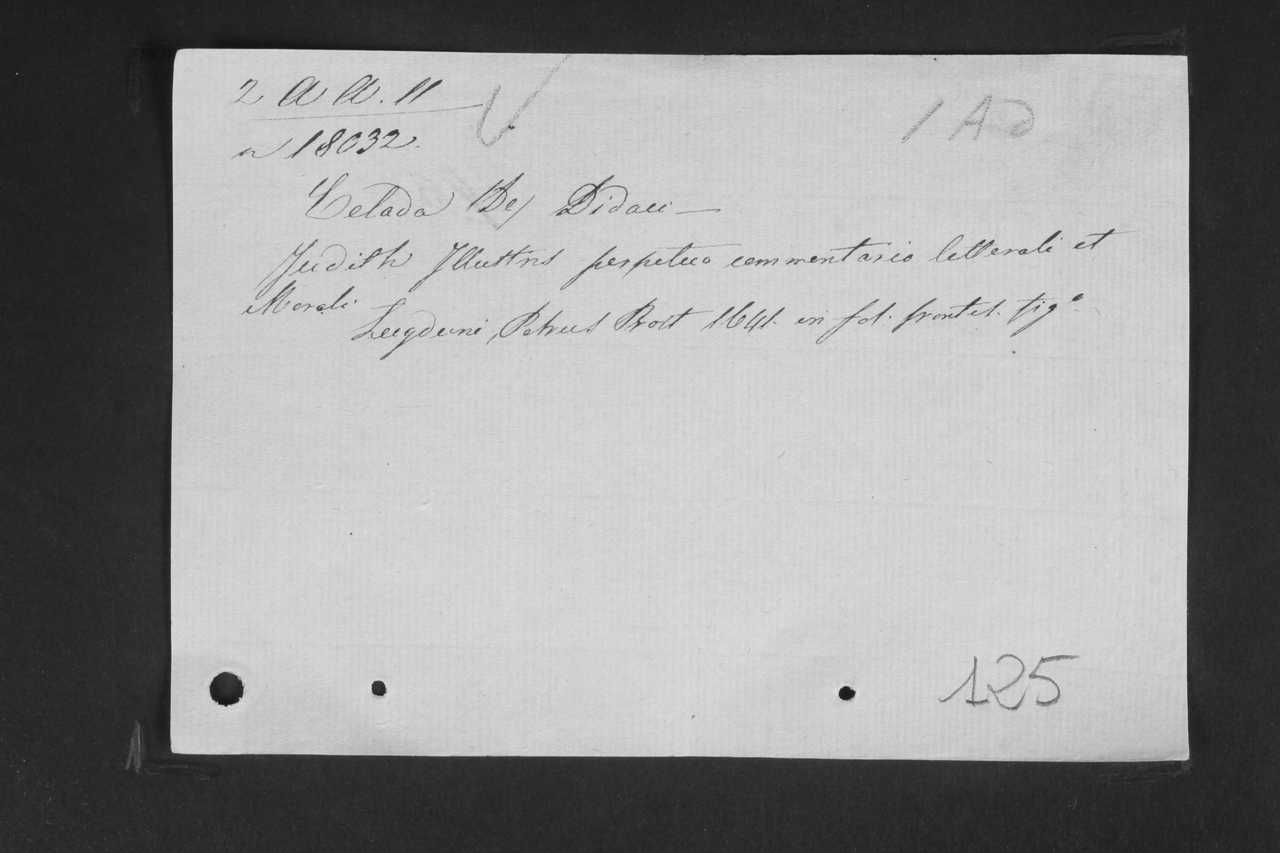 2 A A. 11
1 A D
n 18032.
Celada (De) Didaci —
Judith Illustris perpetuo commentario litterali et
Morali
Lugduni, Petrus Prost 1641. in fol. frontes. fig.e
125